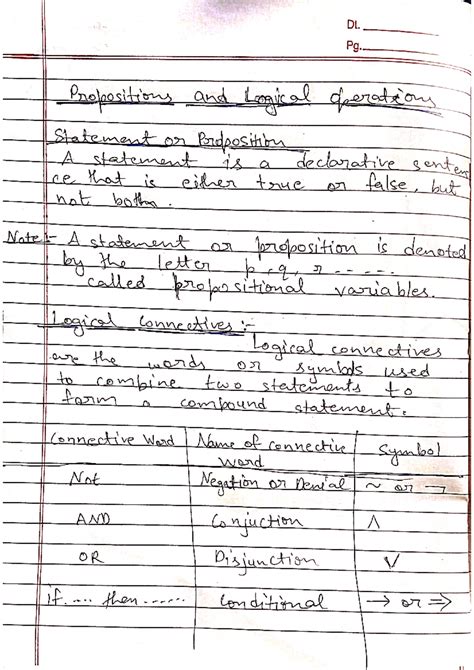 Dt.
Pg.
Propositions and Logical operations
Statement or Proposition
A statement is a declarative senten
ce that is either true or false, but
not both.
Note:- A statement or proposition is denoted
by the letter p, q, r - - - - -
called propositional variables.
Logical Connectives :-
Logical connectives
are the words or symbols used
to combine two statements to
form a compound statement.
Connective Word | Name of connective word | Symbol
Not | Negation or Denial | ~ or ¬
AND | Conjuction | ∧
OR | Disjunction | ∨
if .... then ...... | Conditional | → or ⇒